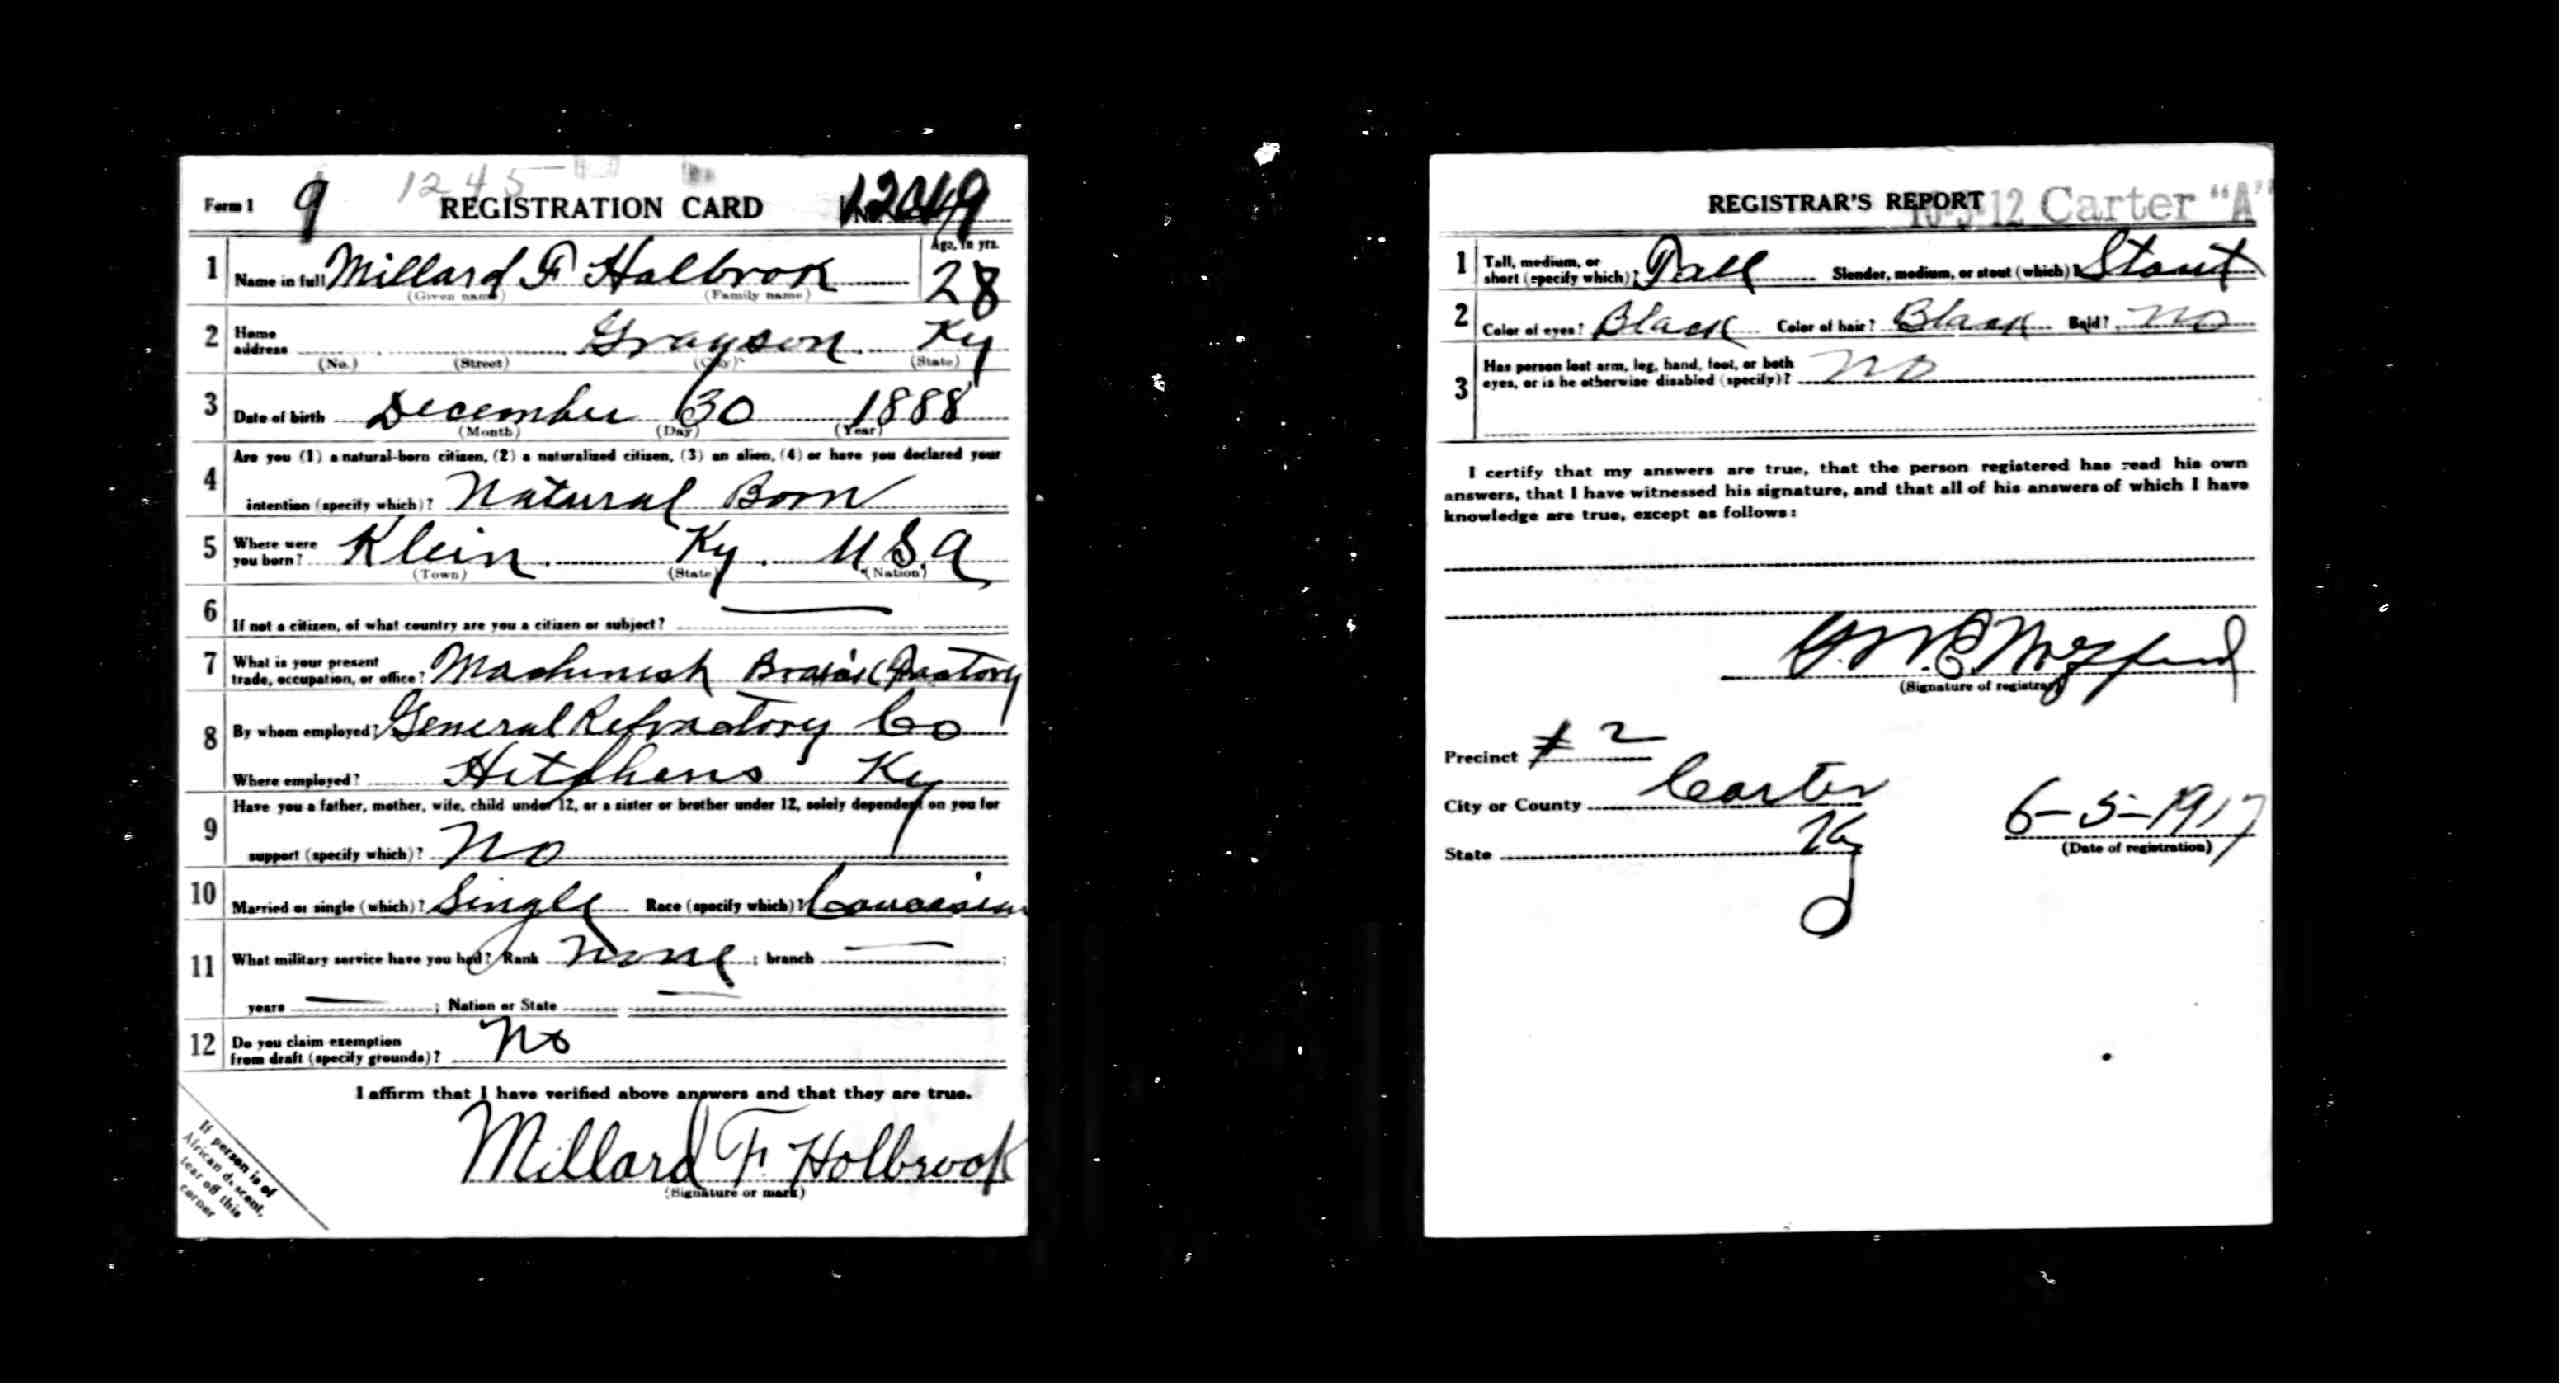 Form 1 9 1245 REGISTRATION CARD No.
1 Name in full Millard F Holbrook Age, in yrs. 28
(Given name) (Family name)
2 Home address Grayson Ky
(No.) (Street) (City) (State)
3 Date of birth December 30 1888
(Month) (Day) (Year)
4 Are you (1) a natural-born citizen, (2) a naturalized citizen, (3) an alien, (4) or have you declared your
intention (specify which)? Natural Born
5 Where were you born? Klein Ky. U.S.A
(Town) (State) (Nation)
6 If not a citizen, of what country are you a citizen or subject?
7 What is your present trade, occupation, or office? Machinist Factory
8 By whom employed? General Refractory Co
Where employed? Hitchens Ky
9 Have you a father, mother, wife, child under 12, or a sister or brother under 12, solely dependent on you for
support (specify which)? No
10 Married or single (which)? Single Race (specify which)? Caucasian
11 What military service have you had? Rank none ; branch ;
years ; Nation or State
12 Do you claim exemption from draft (specify grounds)? No
I affirm that I have verified above answers and that they are true.
Millard F. Holbrook
(Signature or mark)
If person is of
African descent,
tear off this
corner
REGISTRAR'S REPORT 12 Carter "A"
1 Tall, medium, or short (specify which)? Tall Slender, medium, or stout (which)? Stout
2 Color of eyes? Black Color of hair? Black Bald? No
3 Has person lost arm, leg, hand, foot, or both
eyes, or is he otherwise disabled (specify)? No
I certify that my answers are true, that the person registered has read his own
answers, that I have witnessed his signature, and that all of his answers of which I have
knowledge are true, except as follows:
(Signature of registrar)
Precinct # 2
City or County Carter
State Ky
6-5-1917
(Date of registration)